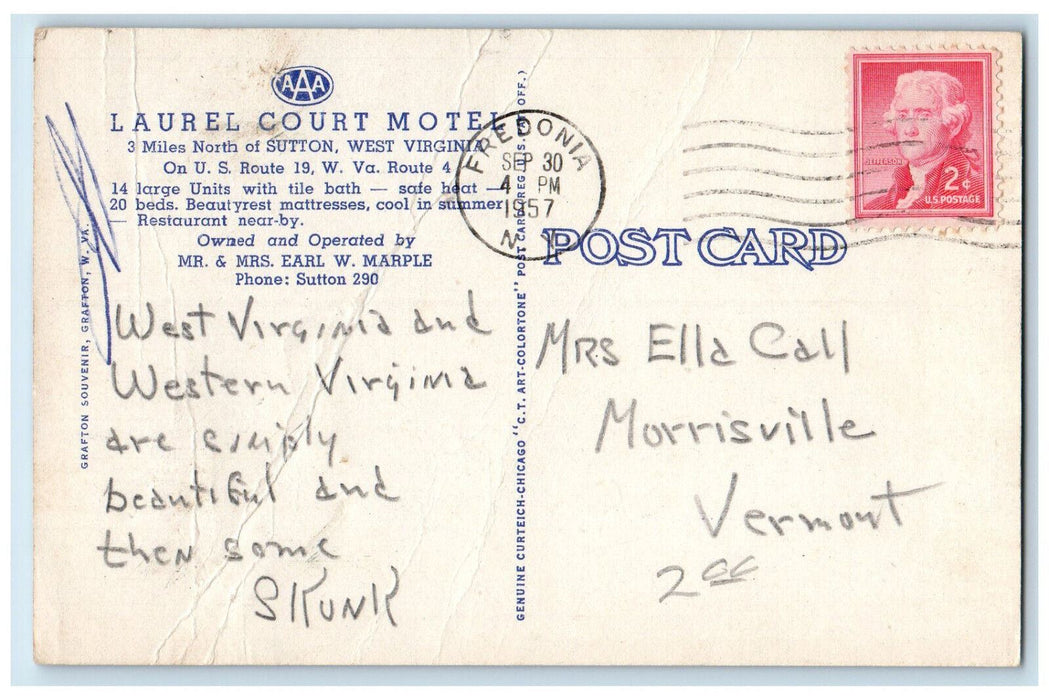 AAA
LAUREL COURT MOTEL
3 Miles North of SUTTON, WEST VIRGINIA
On U. S. Route 19, W. Va. Route 4
14 large Units with tile bath — safe heat —
20 beds. Beautyrest mattresses, cool in summer
— Restaurant near-by.
Owned and Operated by
MR. & MRS. EARL W. MARPLE
Phone: Sutton 290
West Virginia and
Western Virginia
are simply
beautiful and
then some
SKUNK
GRAFTON SOUVENIR, GRAFTON, W. VA.
GENUINE CURTEICH-CHICAGO "C.T. ART-COLORTONE" POST CARD (REG. U.S. PAT. OFF.)
FREDONIA
SEP 30
4 PM
1957
N.Y.
JEFFERSON
2¢
U.S. POSTAGE
POST CARD
Mrs Ella Call
Morrisville
Vermont